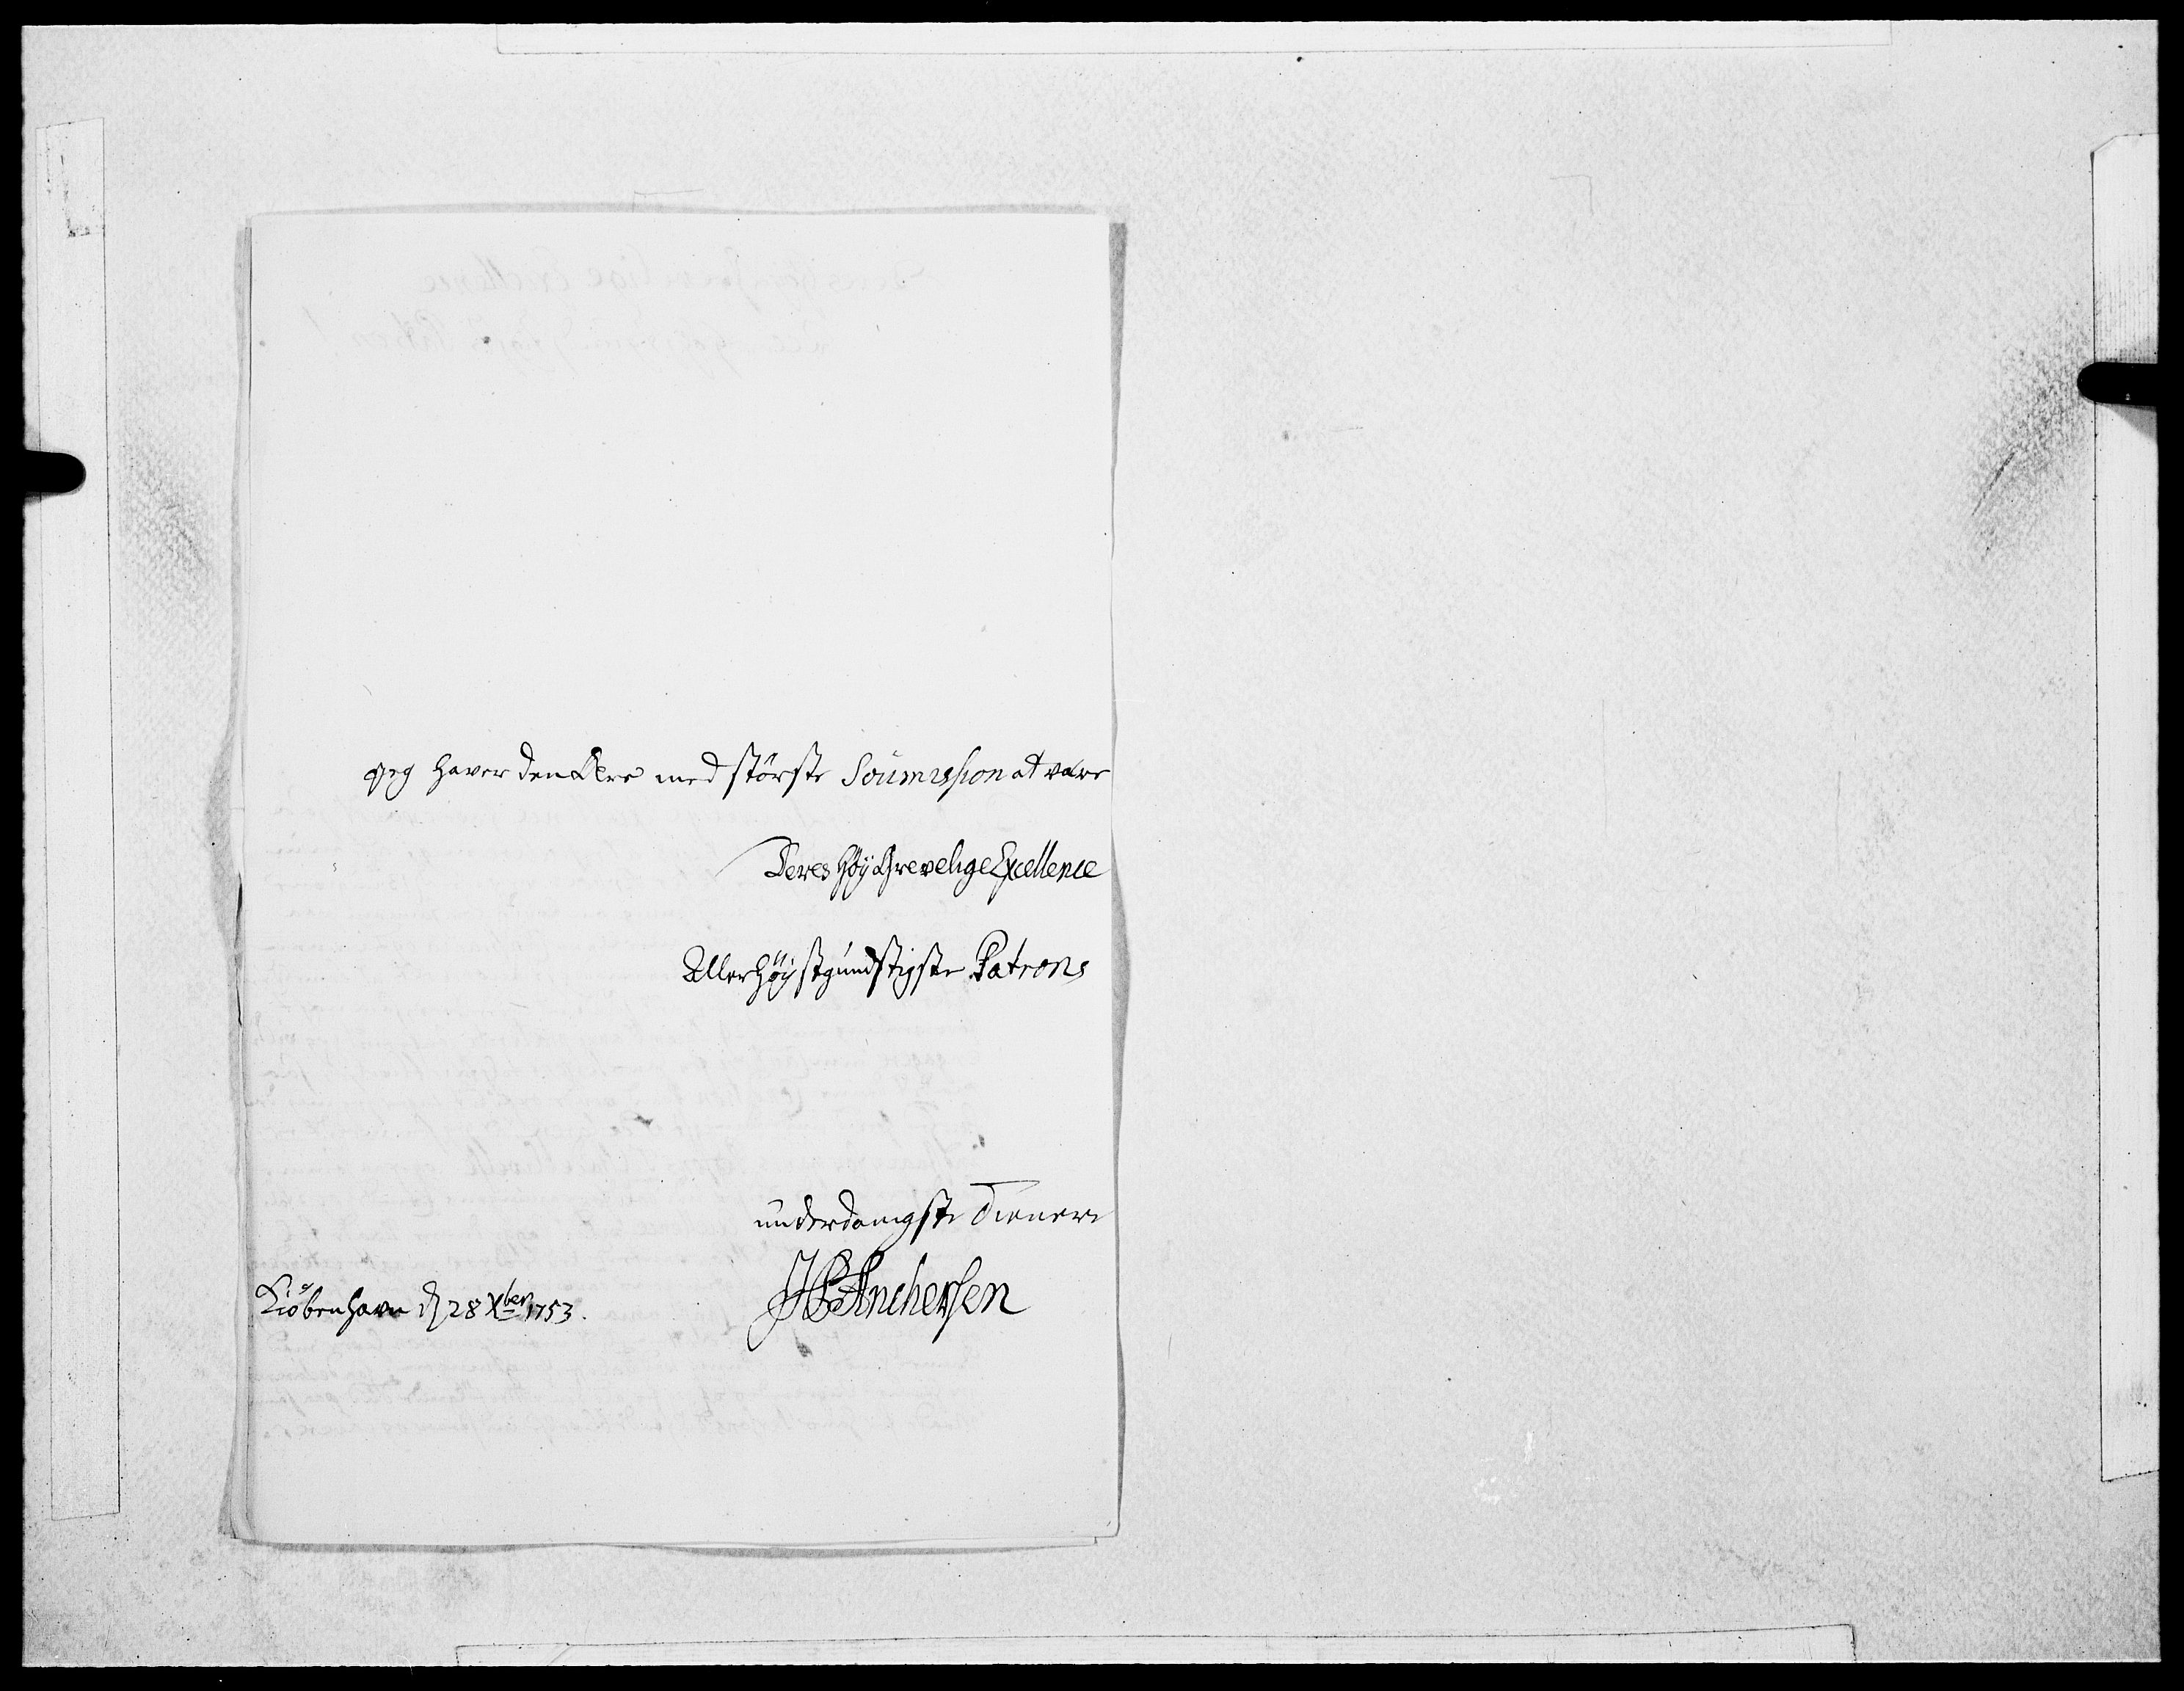 Jeg haver den Ære med störste Soûmission at være
Deres HöyGrevelige Excellence
Allerhöystgúndstigste Patrons
únderdanigste Tienere
HPAnchersen
Kiöbenhavn d 28 Xber 1753.